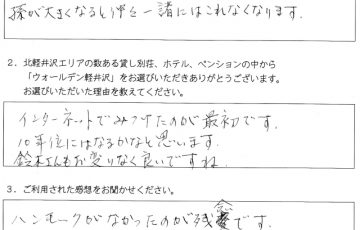 孫が大きくなると中々一緒にはこれなくなります.
2. 北軽井沢エリアの数ある貸し別荘、ホテル、ペンションの中から
「ウォールデン軽井沢」をお選びいただきありがとうございます。
お選びいただいた理由を教えてください。
インターネットでみつけたのが最初です.
10年位にはなるかなと思います.
鈴木さんもお変りなく良いですね.
3. ご利用された感想をお聞かせください。
ハンモークがなかったのが残念です.